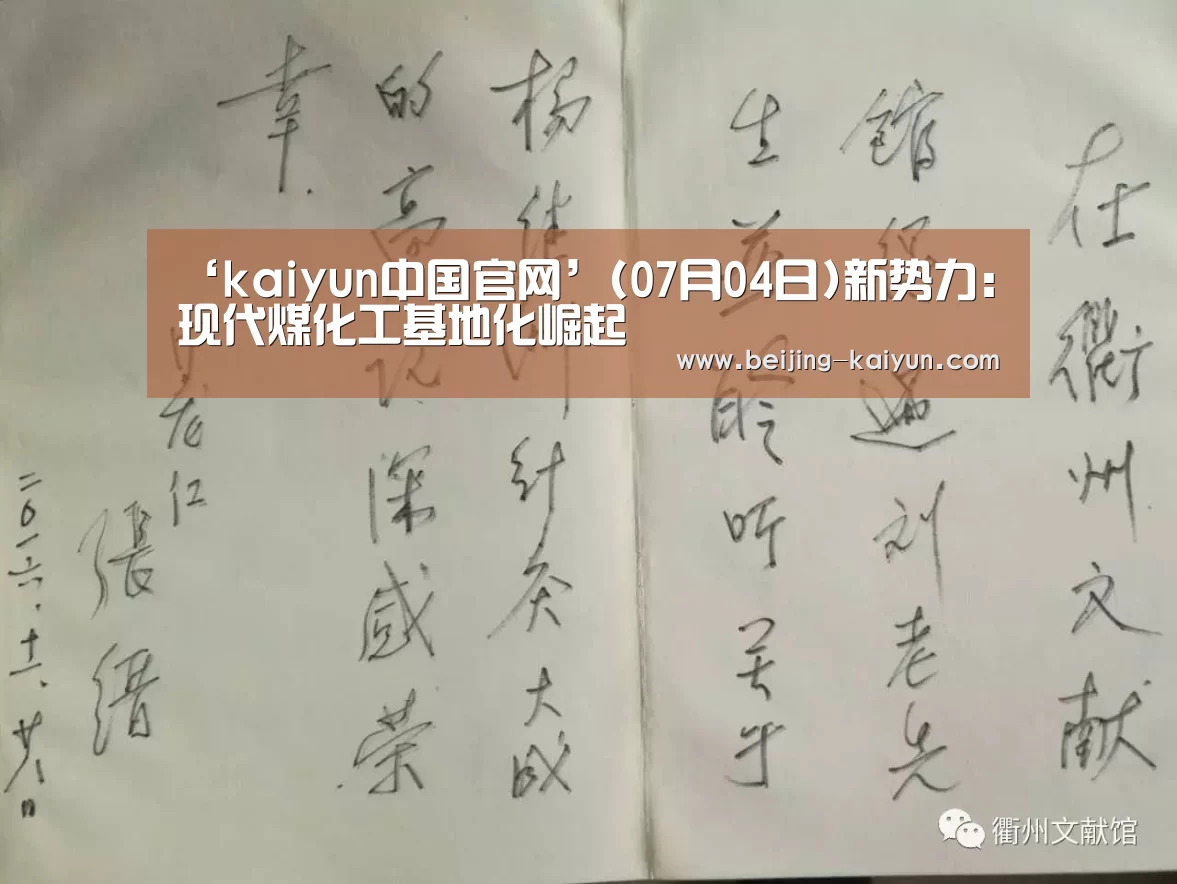 在衢州文献
馆得遇刘老先
生并聆听关于
杨继洲针灸大成
的高深感荣
幸.
老仁
張縉
二〇一六.十一.廿八日
‘kaiyun中国官网’(07月04日)新势力:
现代煤化工基地化崛起
www.beijing-kaiyun.com
衢州文献馆